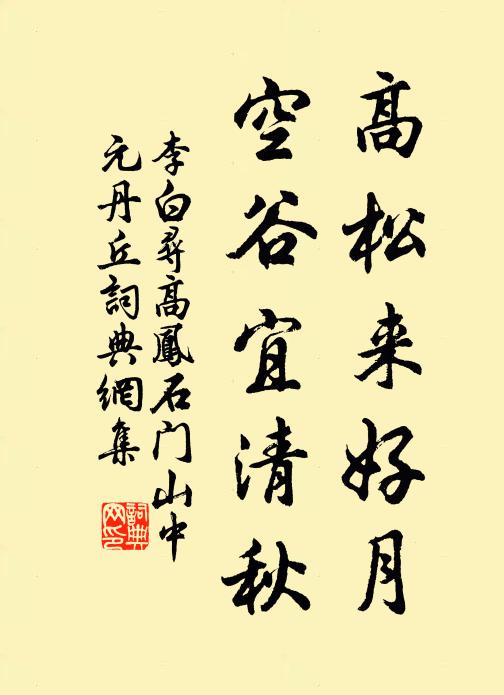 高松来好月
空谷宜清秋
李白寻高鳳石门山中
元丹丘詞典網集
詞典
网印